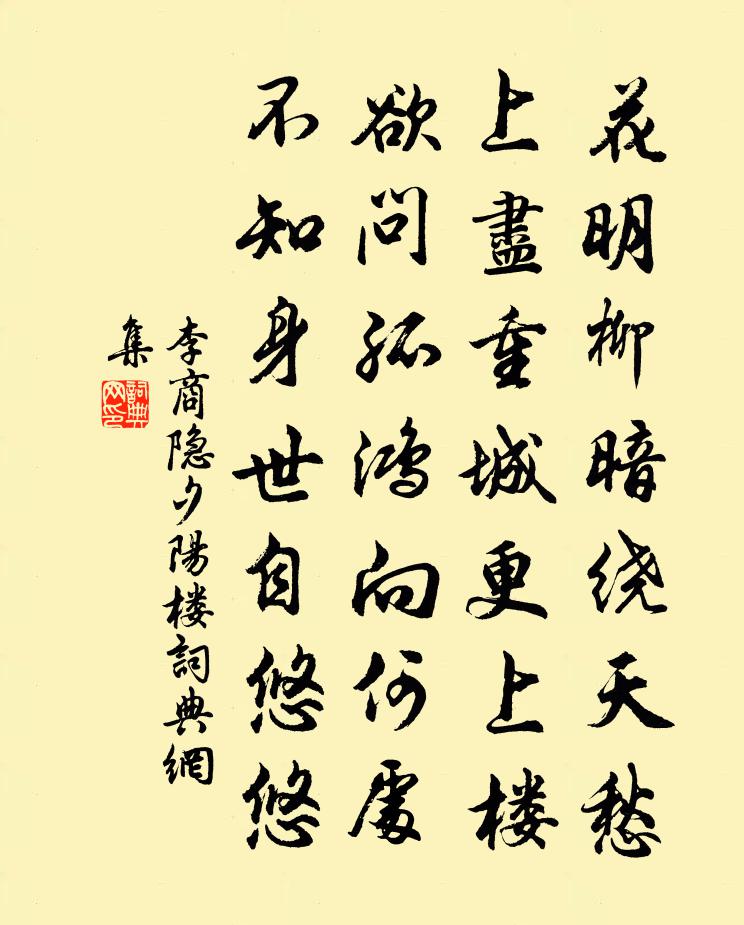 花明柳暗绕天愁
上盡重城更上楼
欲问孤鸿向何處
不知身世自悠悠
李商隐夕陽楼詞典網
集
詞典网印